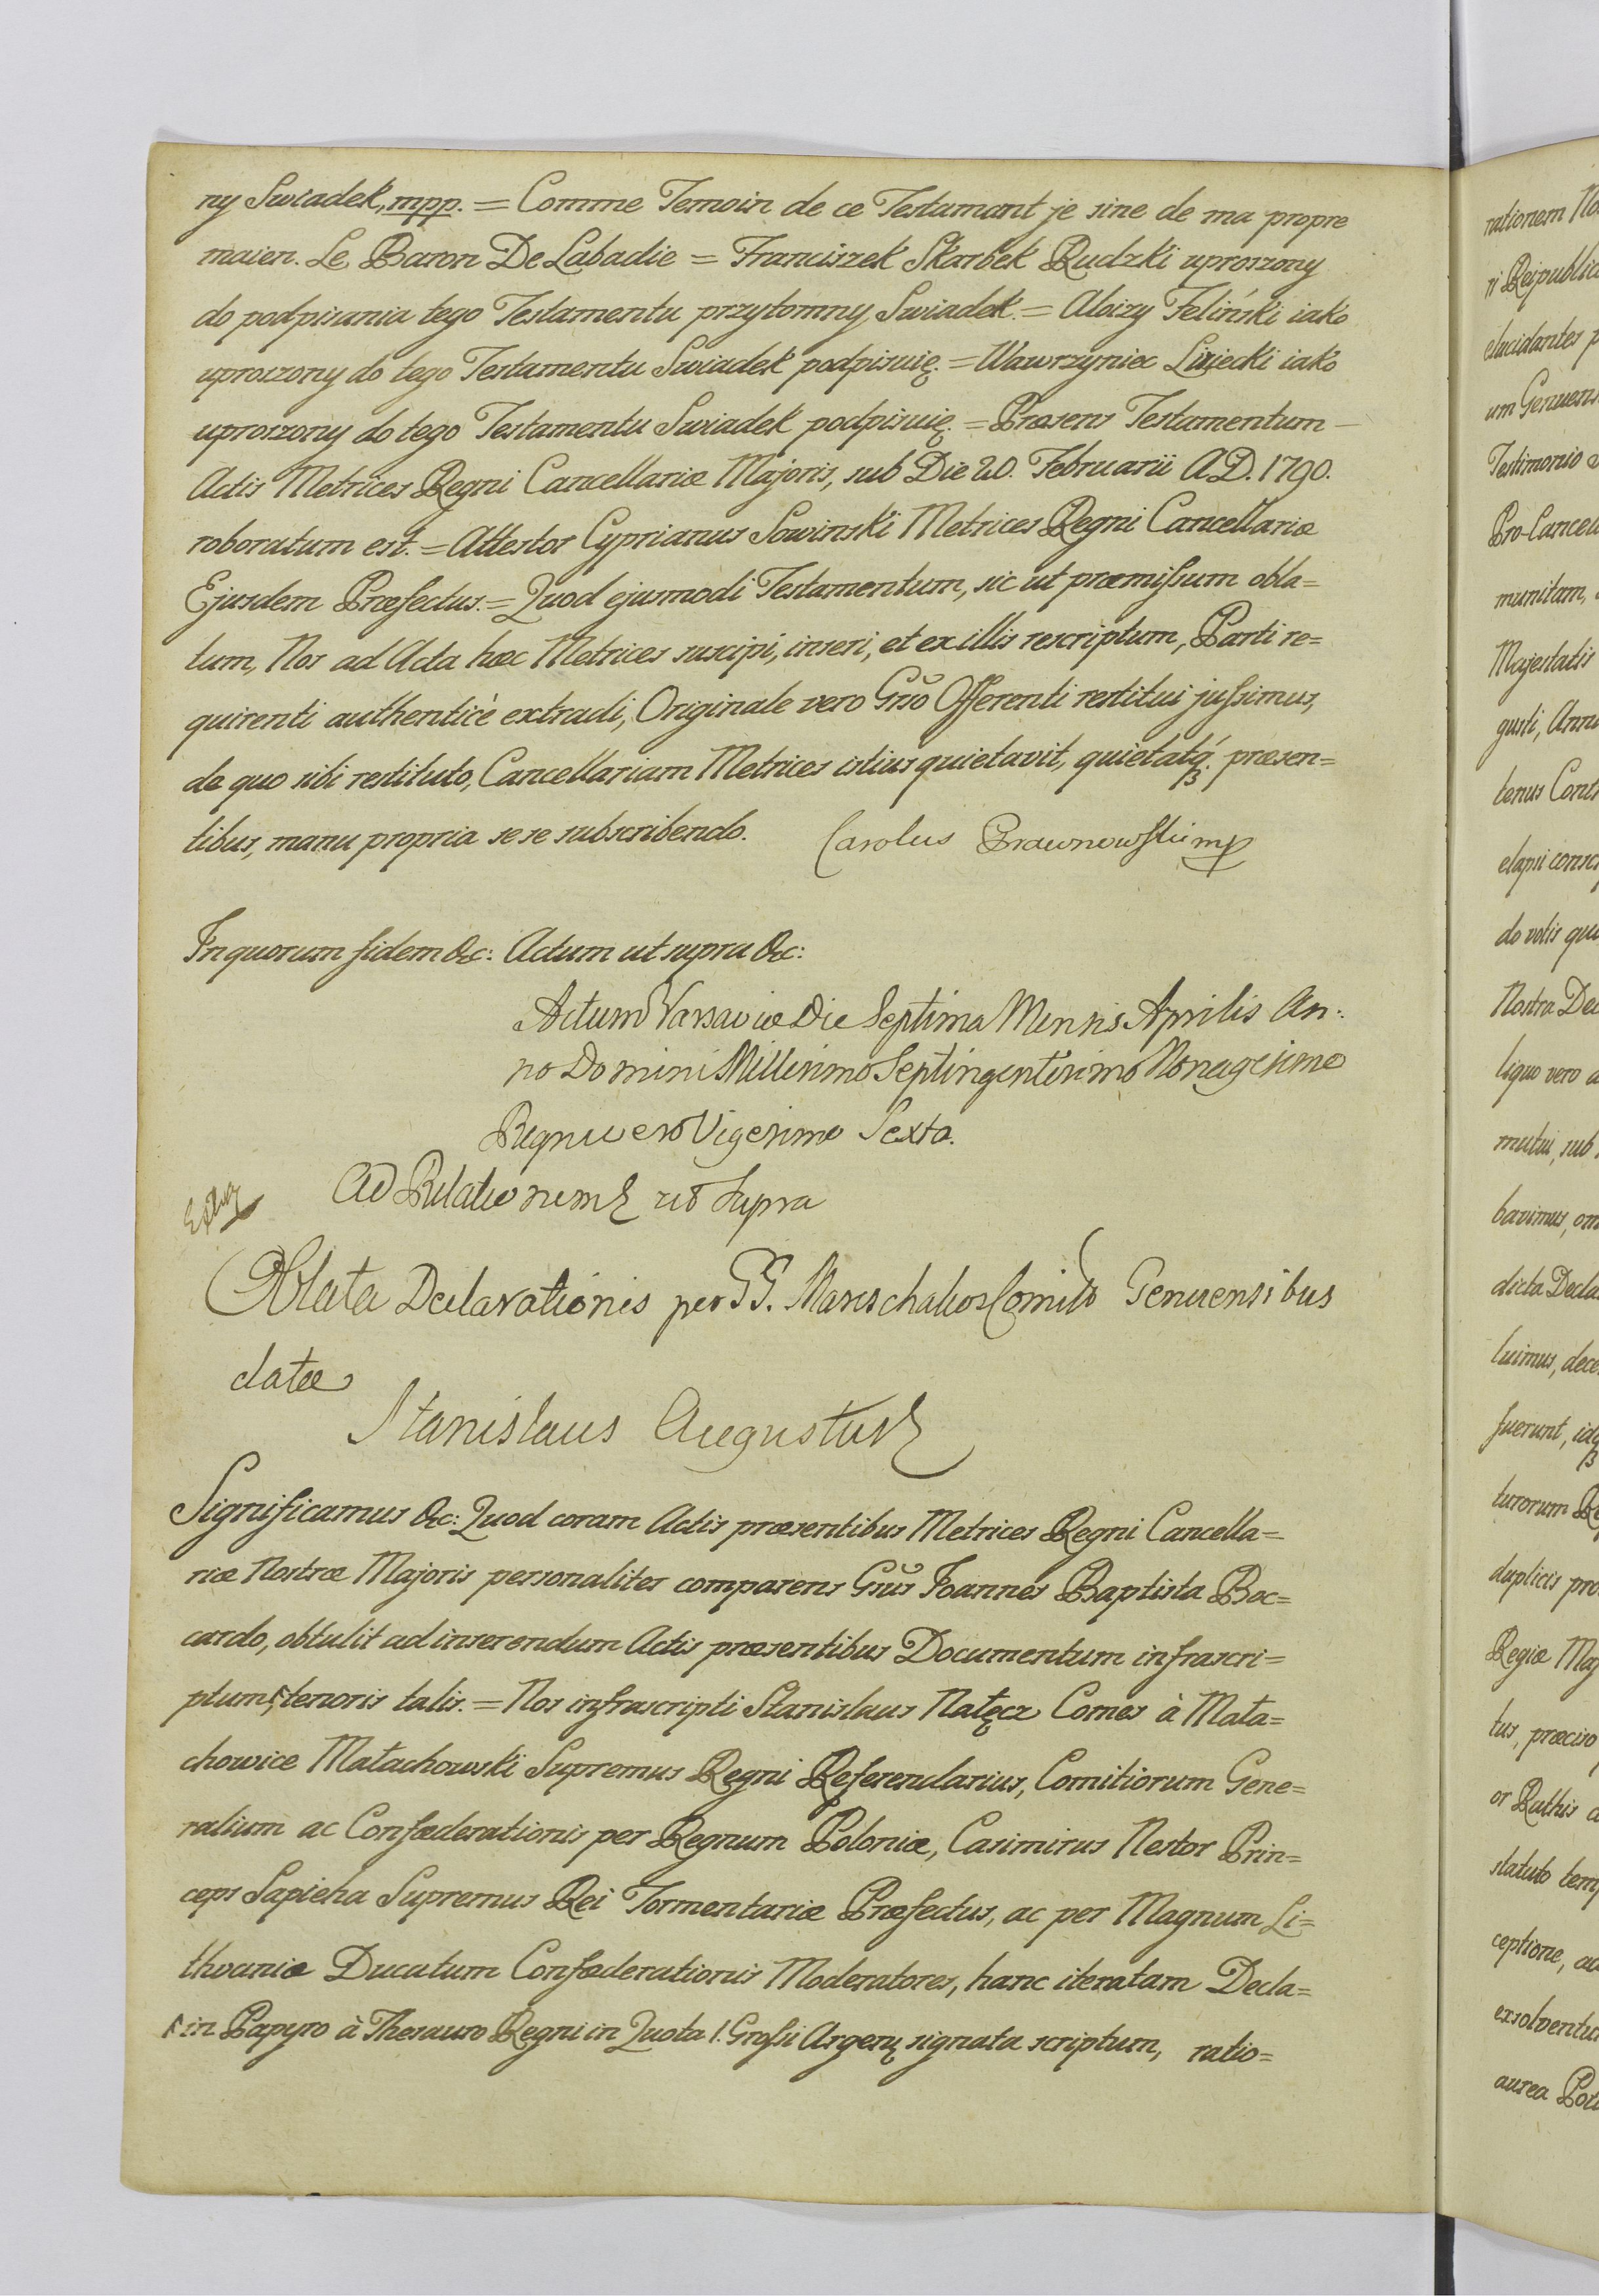 ny Swiadek, mpp. = Comme Temoin de ce Testamant je sine de ma propre
maien. Le Baron De Labadie = Franciszek Skarbek Rudzki uproszony
do podpisania tego Testamentu przytomny Swiadek. = Aloizy Feliński iako
uproszony do tego Testamentu Swiadek podpisuię. = Wawrzyniec Lisiecki iako
uproszony do tego Testamentu Swiadek podpisuię. = Præsens Testamentum
Actis Metrices Regni Cancellariæ Majoris, sub Die 20. Februarii A.D. 1790.
roboratum est. = Attestor Cyprianus Sowinski Metrices Regni Cancellariæ
Ejusdem Præfectus. = Quod ejusmodi Testamentum, sic ut præmissum obla=
tum, Nos ad Acta hæc Metrices suscipi, inseri, et ex illis rescriptum, Parti re=
quirenti authenticè extradi, Originale vero Gnso Offerenti restitui jussimus,
de quo sibi restituto, Cancellariam Metrices istius quietavit, quietatq. præsen=
tibus, manu propria se se subscribendo. Carolus mp
In quorum fidem &c: Actum ut supra &c:
Actum Varsaviæ Die Septima Mensis Aprilis An:
no Domini Millesimo Septingentesimo Nonagesimo
Regni vero Vigesimo Sexto.
Ad Relationem ut Supra
Oblata Declarationis per GG. Mareschalcos Comit Genuensibus
datæ
Stanislaus Augustus
Significamus &c: Quod coram Actis præsentibus Metrices Regni Cancella=
riæ Nostræ Majoris personaliter comparens Gnsus Joannes Baptista Boc=
cardo, obtulit ad inserendum Actis præsentibus Documentum infrascri=
ptum, tenoris talis. = Nos infrascripti Stanislaus Nałęcz Comes à Mała=
chowice Małachowski Supremus Regni Referendarius, Comitiorum Gene=
ralium ac Confæderationis per Regnum Poloniæ, Casimirus Nestor Prin=
ceps Sapieha Supremus Rei Tormentariæ Præfectus, ac per Magnum Li=
thvaniæ Ducatum Confæderationis Moderatores, hanc iteratam Decla=
in Papyro à Thesauro Regni in Quota 1. Grossi Argen signata scriptum, ratio=
rationem
ri Reipublicæ
elucidantes
um
Testimonio
munitam,
Majestatis
gusti,
tenus
elapsi
do volis
Nostra
liquo vero
mutui, sub
bavimus,
dicta
luimus,
fuerunt,
turorum
duplicis
Regiæ
tus, præciso
or Rathis
statuto
ceptione,
aurea